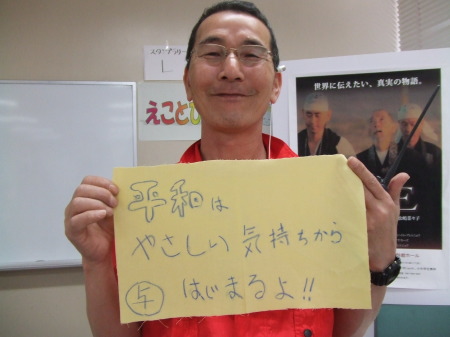 スタンプラリー
L
えことぴ
世界に伝えたい、真実の物語。
平和は
やさしい気持ちから
与 はじまるよ!!